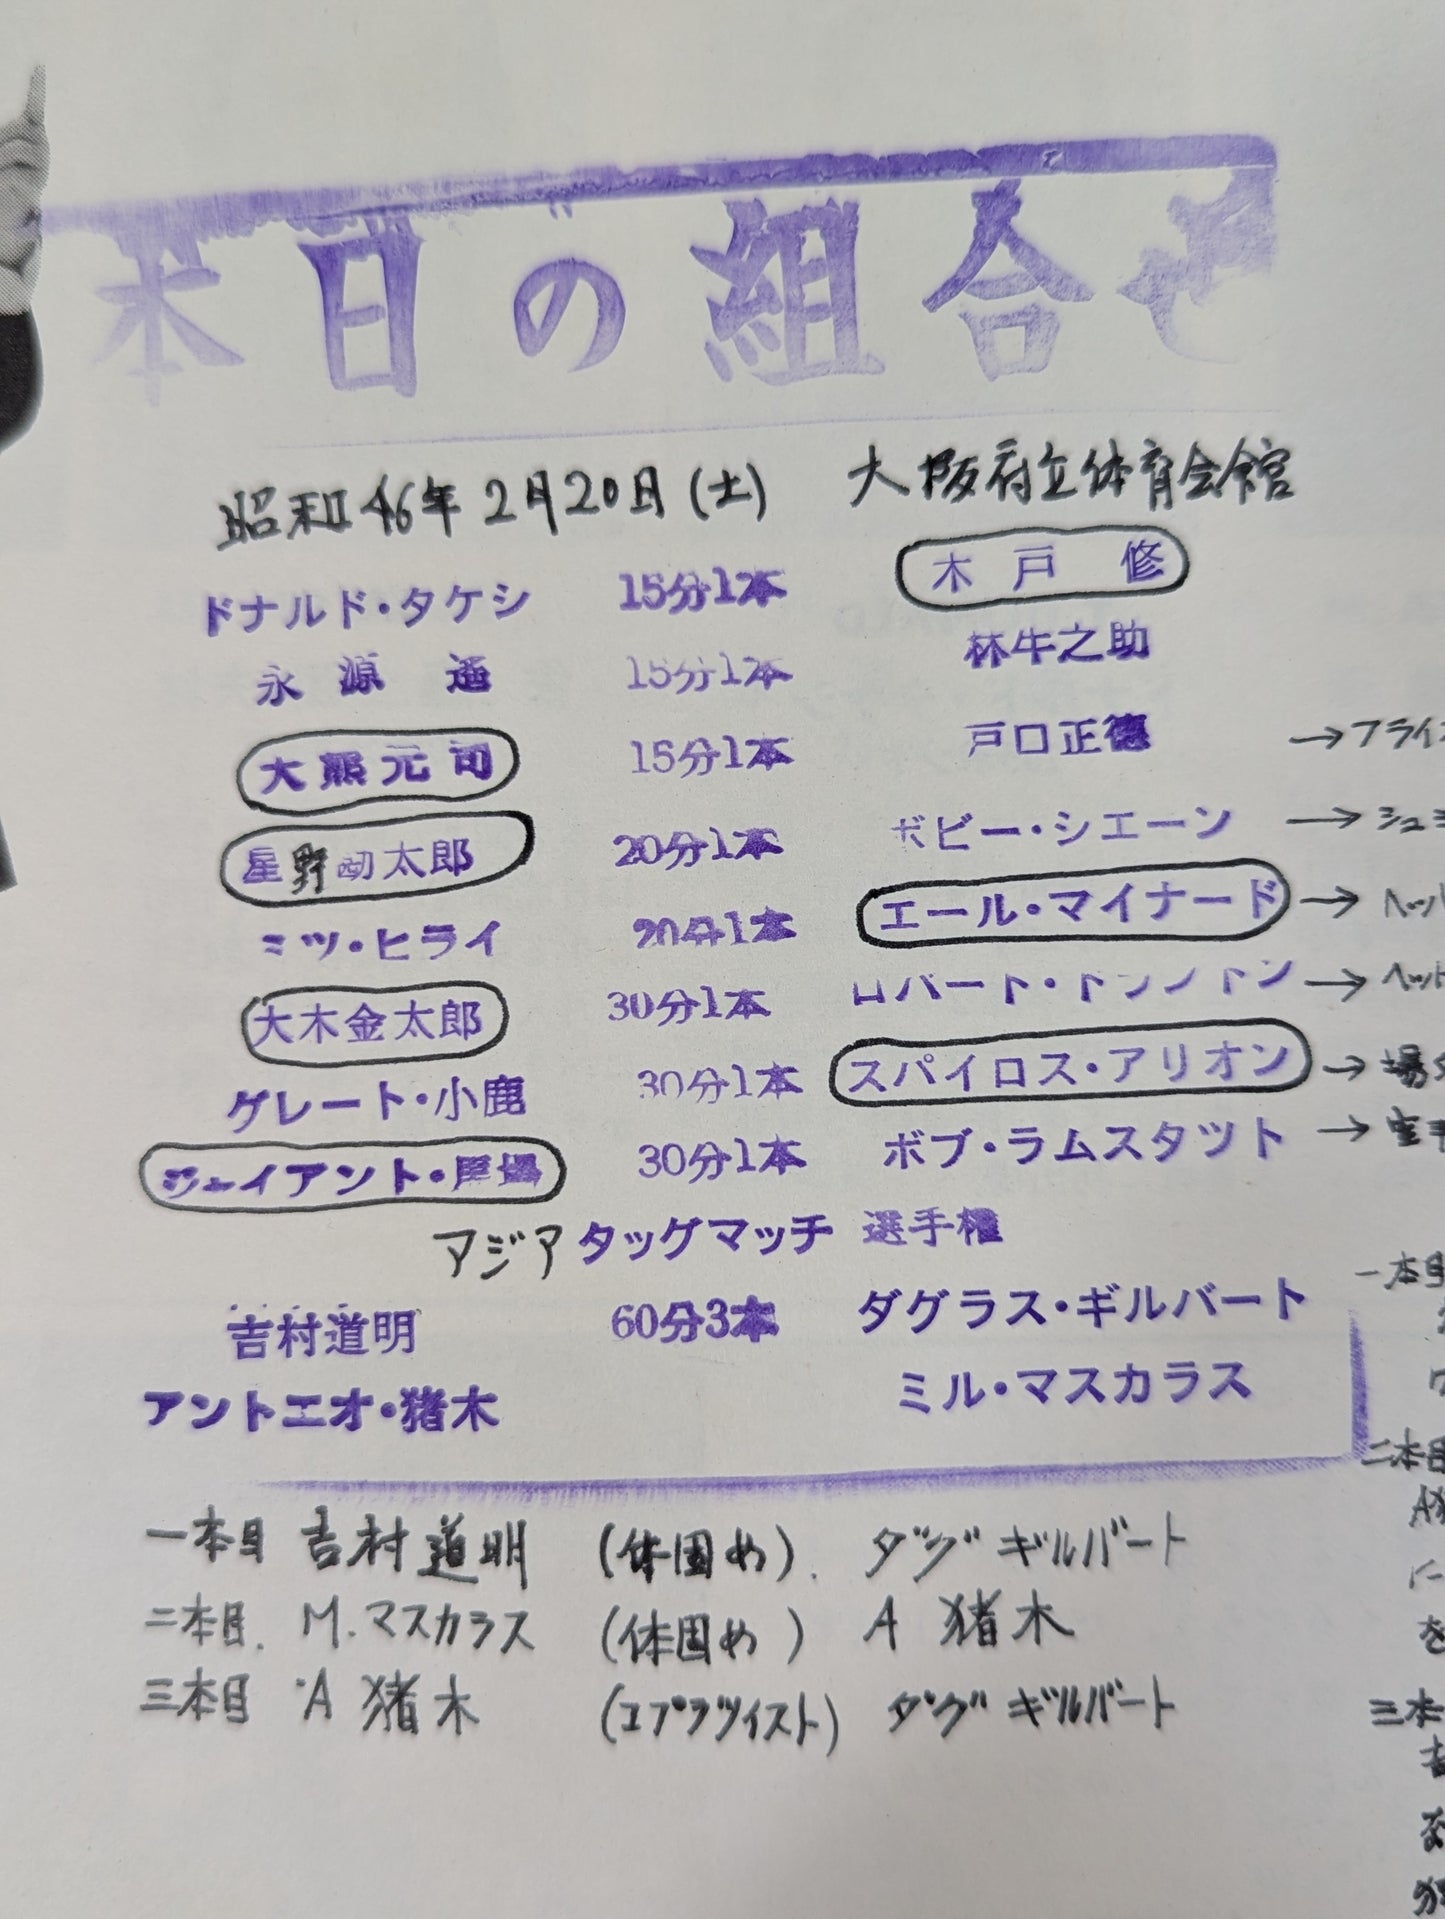 本日の組合せ
昭和46年2月20日(土) 大阪府立体育会館
ドナルド・タケシ 15分1本 木戸修
永源遥 15分1本 林牛之助
大熊元司 15分1本 戸口正徳 →フライ
星野勘太郎 20分1本 ボビー・シエーン →シュミ
ミツ・ヒライ 20分1本 エール・マイナード →ヘッド
大木金太郎 30分1本 ロバート・ →ヘッド
グレート・小鹿 30分1本 スパイロス・アリオン →場外
ジャイアント・馬場 30分1本 ボブ・ラムスタツト →空手
アジアタッグマッチ 選手権
吉村道明 60分3本 ダグラス・ギルバート
アントニオ・猪木 ミル・マスカラス
一本目 吉村道明 (体固め). ダグ ギルバート
二本目. M.マスカラス (体固め) A 猪木
三本目 A 猪木 (コブラツイスト) ダグ ギルバート
一本目
二本目
A猪
に
を
三本